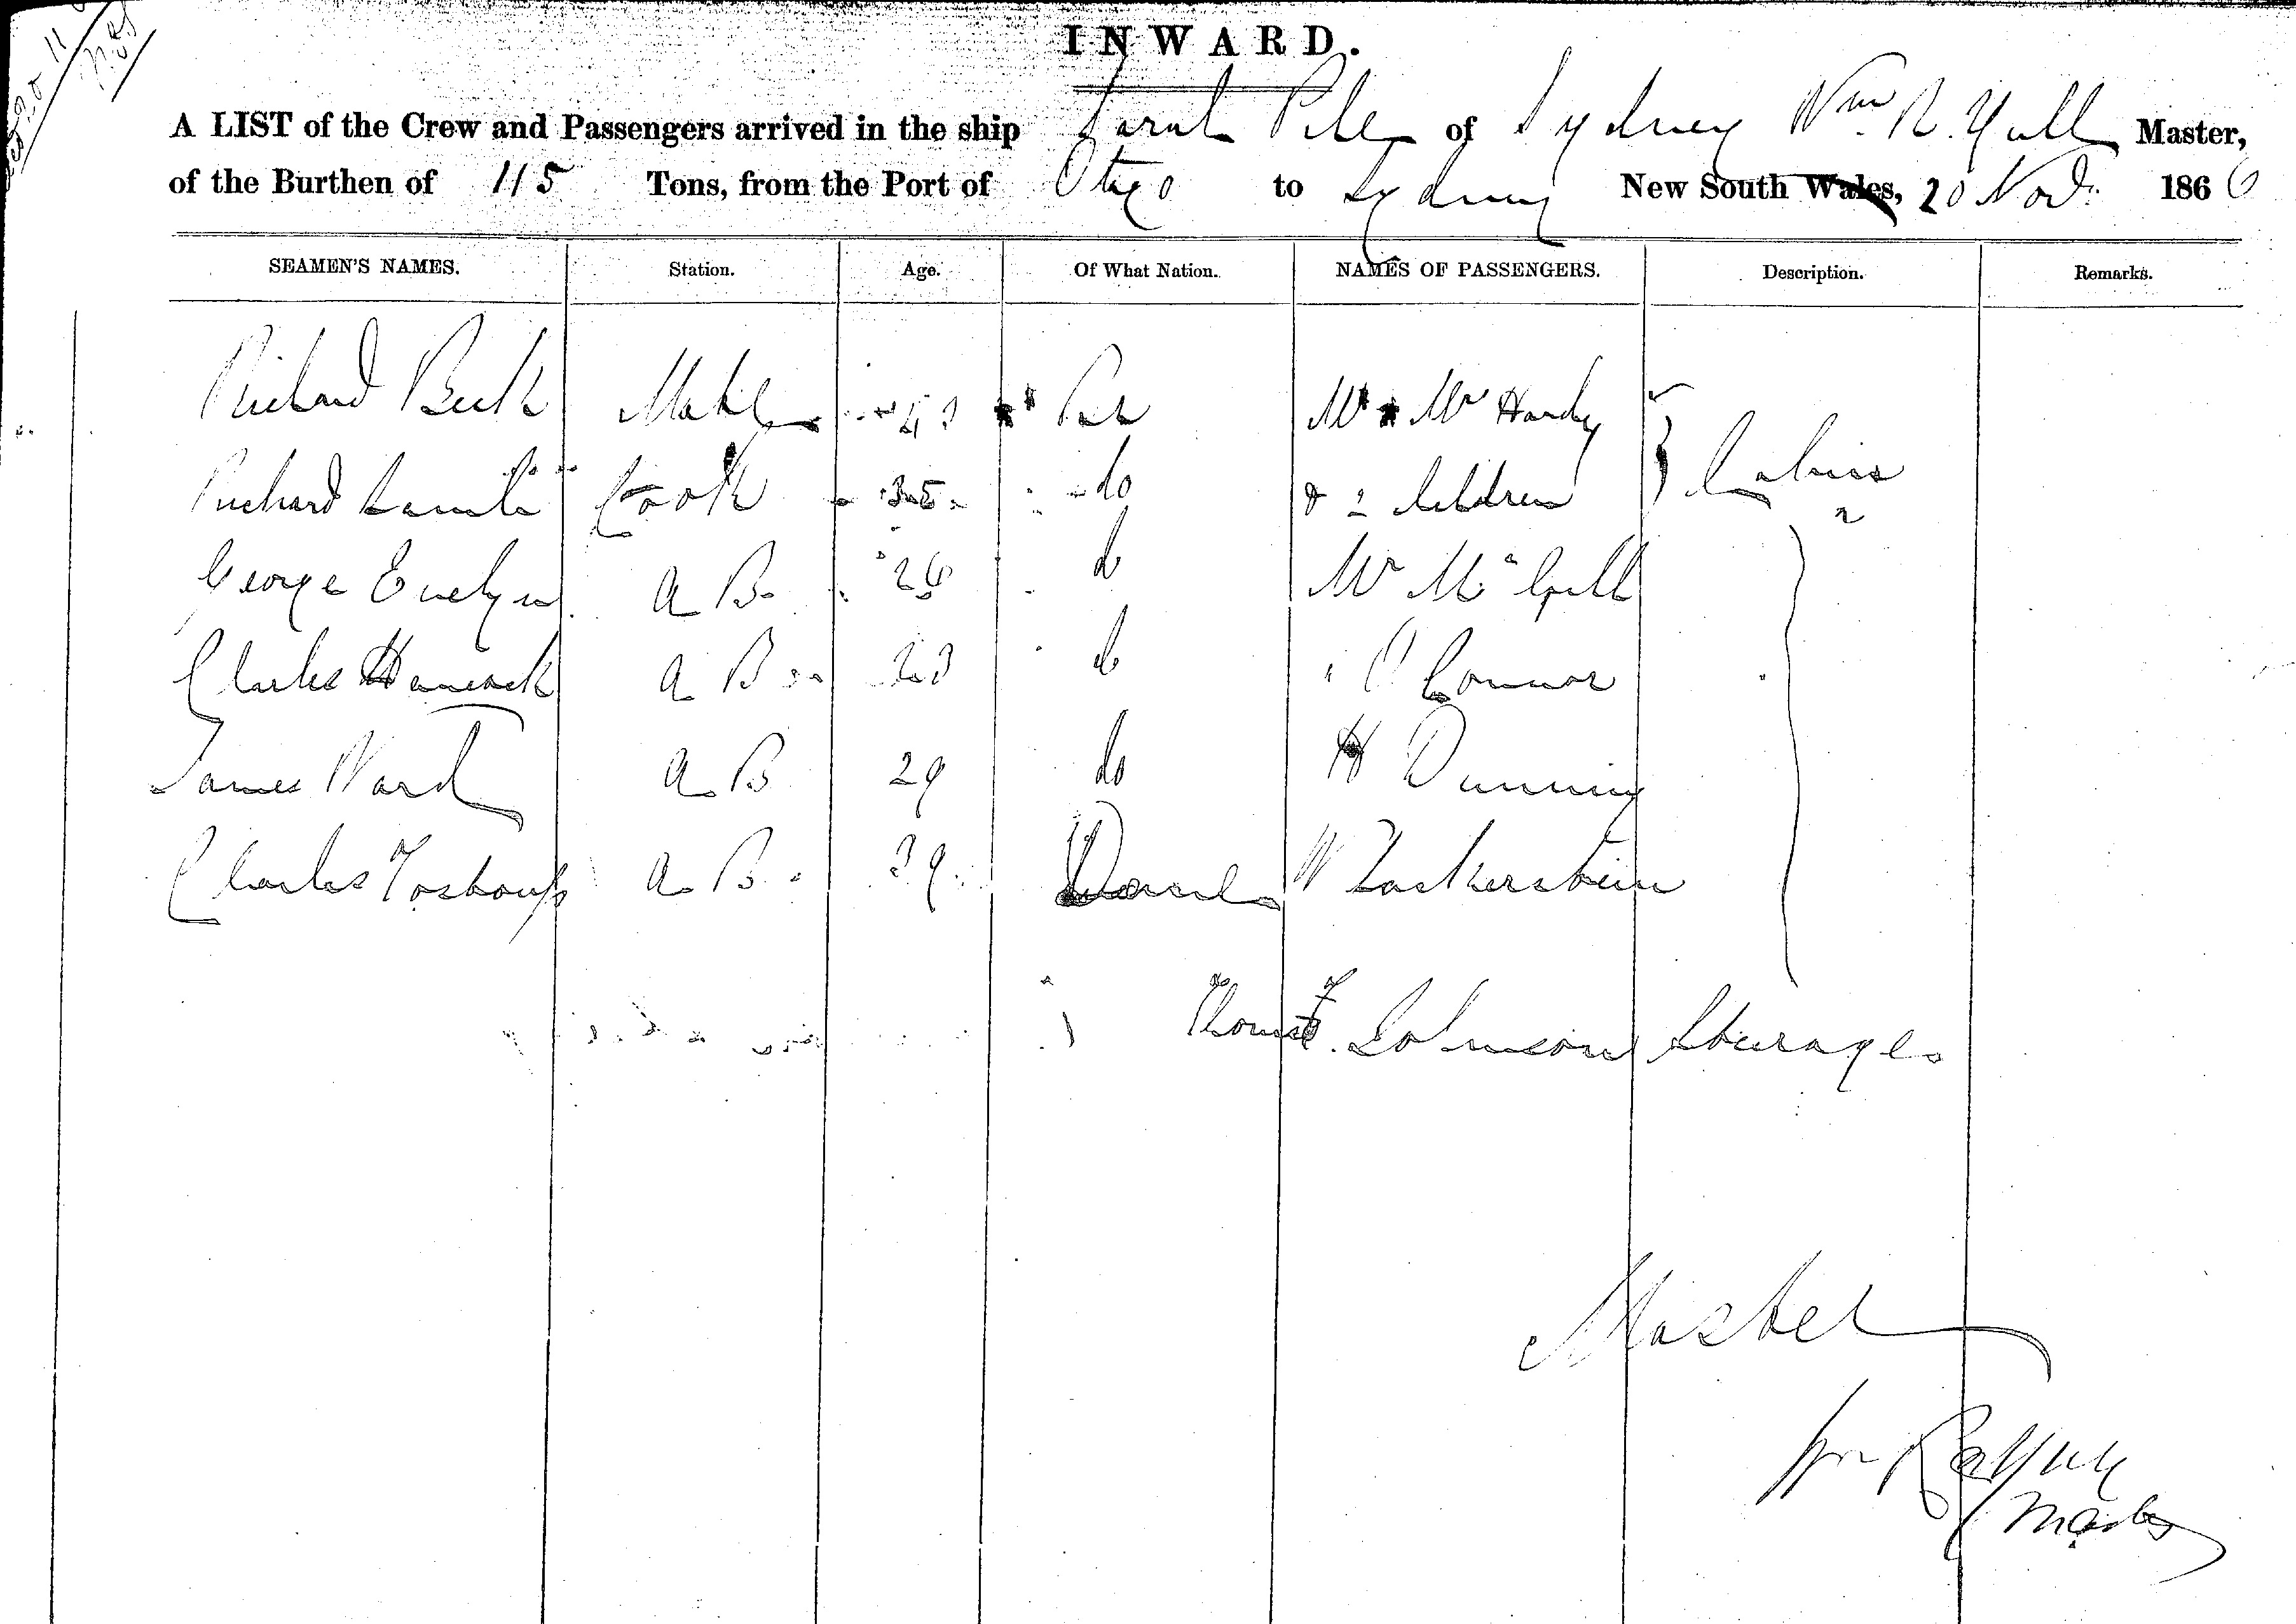 INWARD.
A LIST of the Crew and Passengers arrived in the ship Sarah Pile of Sydney Wm. R. Yule Master,
of the Burthen of 115 Tons, from the Port of Otago to Sydney New South Wales, 20 Nov. 1866
SEAMEN'S NAMES. Station. Age. Of What Nation. NAMES OF PASSENGERS. Description. Remarks.
Richard Mate Mr Hardy
Richard Cook 35 do & 2 Children Cabin
George Evelyn A B 26 do Mr McGill
Charles Hancock A B 23 do " O Connor
James Ward A B 29 do Dunning
Charles A B 39 Dane
Thomas Johnson Steerage
Master
Wm R Yule
Master